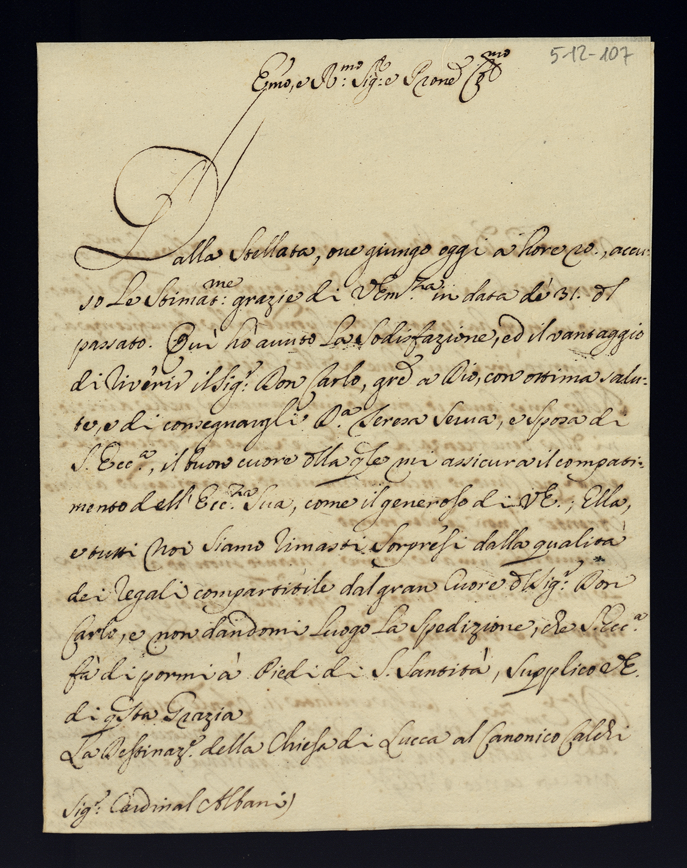 5-12-107
Em̃o, e R.mo Sig.re e Prone
Dalla Stellata, ove giungo oggi a hore 20., accu-
so Le Stimat.me grazie di VEm.za in data de 31. del
passato. Qui hò avuto La Sodisfazione, ed il vantaggio
di riverir il Sig.r Don Carlo, gr̃e a Dio, con ottima salu-
te, e di consegnargli D.a Teresa Serva, e Sposa di
S. Ecc.a, il buon cuore della qle mi assicura il compati-
mento dell' Ecc.za Sua, come il generoso di VE.; Ella,
e tutti Noi Siamo rimasti Sorpresi dalla qualità
dei regali compartitile dal gran Cuore del Sig.r Don
Carlo, e non dandomi Luogo La Spedizione, che S. Ecc.a
fà di pormi à Piedi di S. Santità, Supplico VE.
di qsta Grazia
La Destinaz.e della Chiesa di Lucca al Canonico
Sig.r Cardinal Albani)